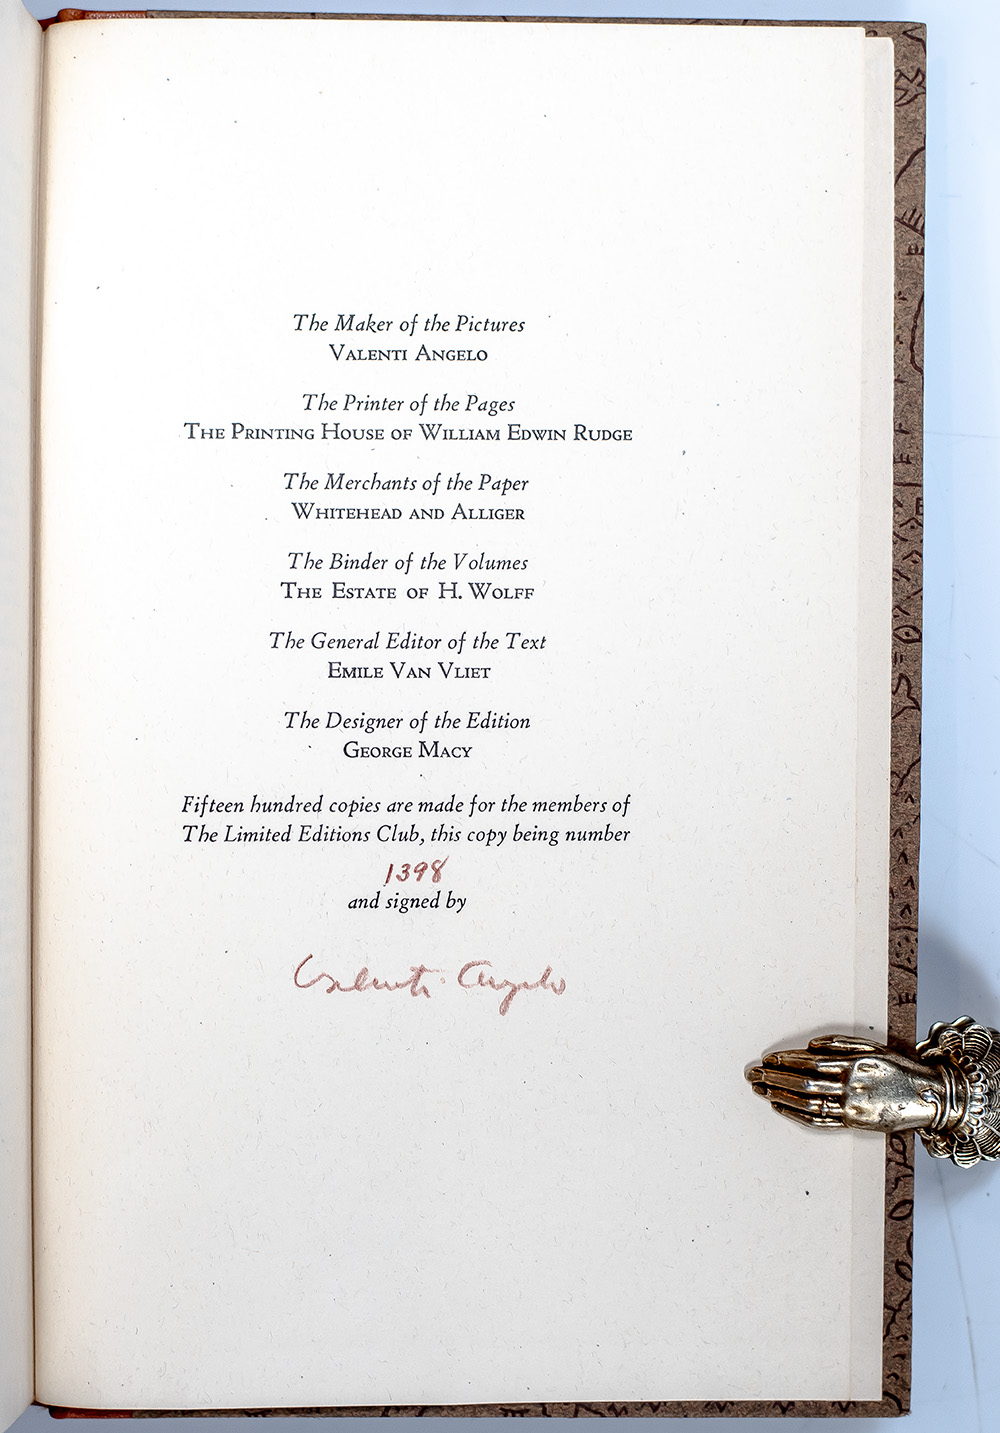 The Maker of the Pictures
VALENTI ANGELO
The Printer of the Pages
THE PRINTING HOUSE OF WILLIAM EDWIN RUDGE
The Merchants of the Paper
WHITEHEAD AND ALLIGER
The Binder of the Volumes
THE ESTATE OF H. WOLFF
The General Editor of the Text
EMILE VAN VLIET
The Designer of the Edition
GEORGE MACY
Fifteen hundred copies are made for the members of
The Limited Editions Club, this copy being number
1398
and signed by
Valenti Angelo